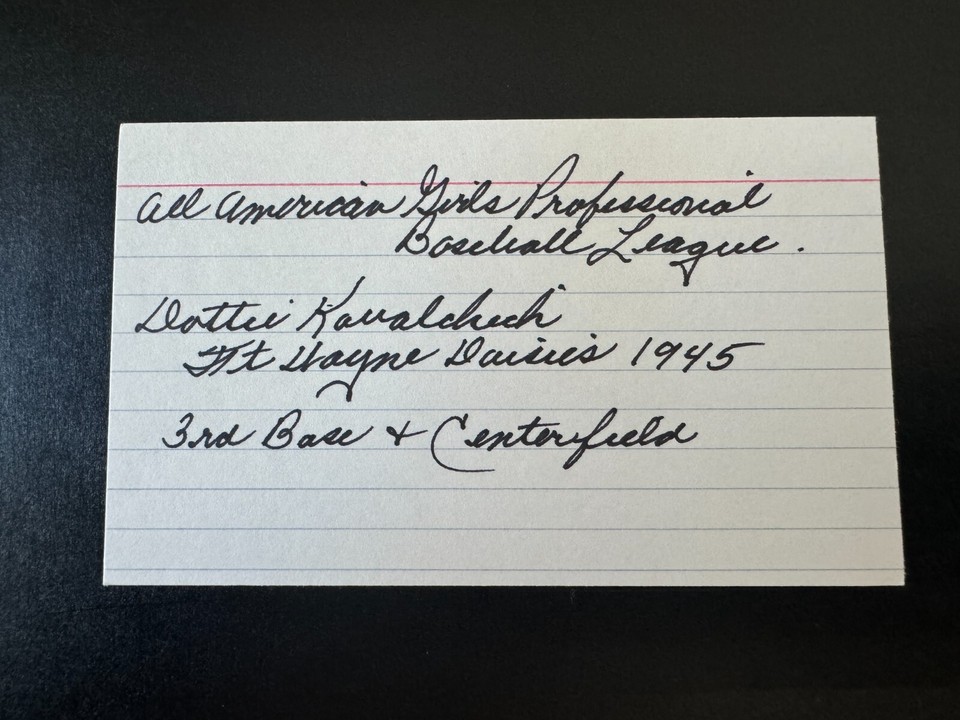 All American Girls Professional
Baseball League.
Dottie Kovalchick
Ft Wayne Daisies 1945
3rd Base + Centerfield